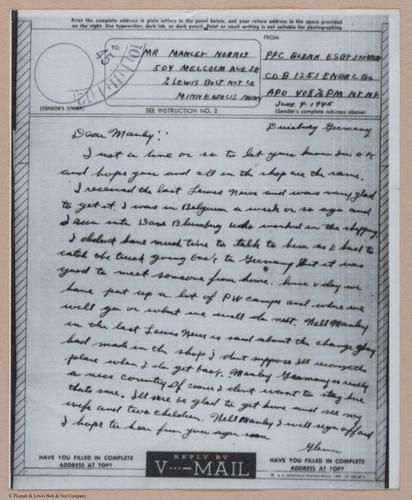 Print the complete address in plain letters in the panel below, and your return address in the space provided
on the right. Use typewriter, dark ink, or dark pencil. Faint or small writing is not suitable for photographing.
TO
MR MANLEY NORRIS
504 MELCOLM AVE SE
% LEWIS BOLT NUT CO
MINNEAPOLIS MINN
FROM
PFC GLENN
CO B 1253 ENGR C BN
APO 408 % PM NY NY
JUNE 4 1945
(CENSOR'S STAMP)
SEE INSTRUCTION NO. 2
(Sender's complete address above)
Duisburg Germany
Dear Manley:
Just a line or so to let you know I'm O K
and hope you and all in the shop are the same.
I received the last Lewis News and was very glad
to get it. I was in Belgium a week or so ago and
I seen into Dave Blumberg who worked in the shipping.
I didn't have much time to talk to him as I had to
catch the truck going back to Germany But it was
good to meet someone from home. Since V day we
have put up a lot of PW camps and where we
will go or what we will do next. Well Manley
in the last Lewis News it said about the change they
had made in the shop. I don't suppose I'll recognize the
place when I do get back. Manley Germany is really
a nice country Of course I don't want to stay here
thats sure. I'll sure be glad to get home and see my
wife and two children. Well Manley I will sign off and
I hope to hear from you again soon
Glenn
HAVE YOU FILLED IN COMPLETE
ADDRESS AT TOP?
REPLY BY
V···–MAIL
HAVE YOU FILLED IN COMPLETE
ADDRESS AT TOP?
© Pioneer & Lewis Bolt & Nut Company